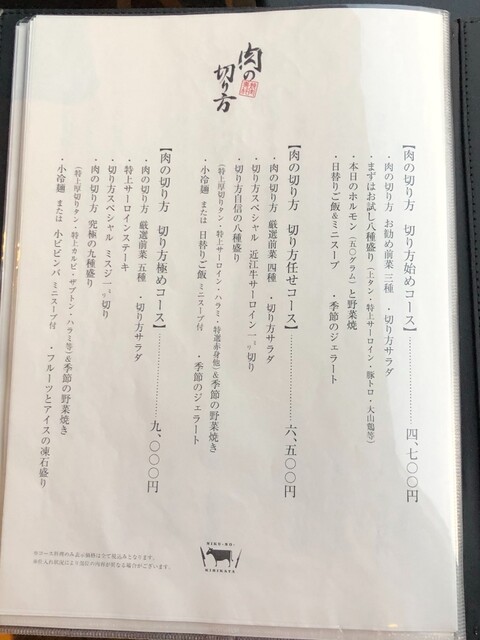 肉の切り方
【肉の切り方 切り方始めコース】…………四、七〇〇円
・肉の切り方 お勧め前菜 三種 ・切り方サラダ
・まずはお試し八種盛り（上タン・特上サーロイン・豚トロ・大山鶏等）
・本日のホルモン（五〇グラム）と野菜焼
・日替りご飯&ミニスープ ・季節のジェラート
【肉の切り方 切り方任せコース】…………六、五〇〇円
・肉の切り方 厳選前菜 四種 ・切り方サラダ
・切り方スペシャル 近江牛サーロイン一ミリ切り
・切り方自信の八種盛り
（特上厚切りタン・特上サーロイン・ハラミ・特選赤身他）&季節の野菜焼き
・小冷麺 または 日替りご飯 ミニスープ付 ・季節のジェラート
【肉の切り方 切り方極めコース】…………九、〇〇〇円
・肉の切り方 厳選前菜 五種 ・切り方サラダ
・特上サーロインステーキ
・切り方スペシャル ミスジ一ミリ切り
・肉の切り方 究極の九種盛り
（特上厚切りタン・特上カルビ・ザブトン・ハラミ等）&季節の野菜焼き
・小冷麺 または 小ビビンバ ミニスープ付 ・フルーツとアイスの凍石盛り
NIKU-NO-
KIRIKATA
※コース料理のみ表示価格は全て税込みとなります。
※仕入れ状況により当日の内容が異なる場合がございます。